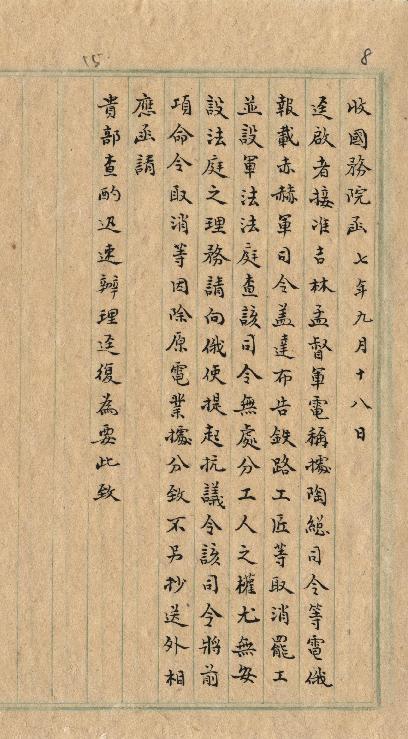 8
15
收國務院函七年九月十八日
逕啟者接准吉林孟督軍電稱據陶總司令等電俄
報載赤赫軍司令盖達布告鉄路工匠等取消罷工
並設軍法法庭查該司令無處分工人之權尤無安
設法庭之理務請向俄使提起抗議令該司令將前
項命令取消等因除原電業據分致不另抄送外相
應函請
貴部查酌迅速辦理逕復為要此致